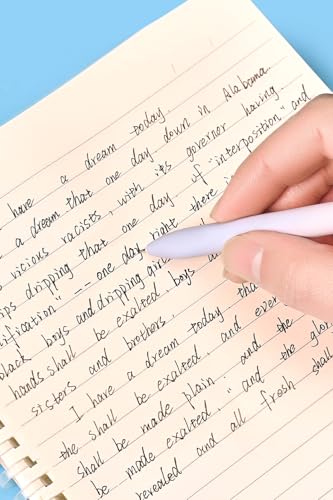 have a dream today.
a dream that one day down in Alabama
s vicious racists, with its governor having
ips dripping that one day of "interposition" and
ification" -- one day right there i
black boys and dripping girl
hands shall be exalted boys a
sisters and brothers.
I have a dream today tha
the shall be exalted, and ever
shall be made plain, and the
be made exalted," and the glo
revealed and all fresh shal